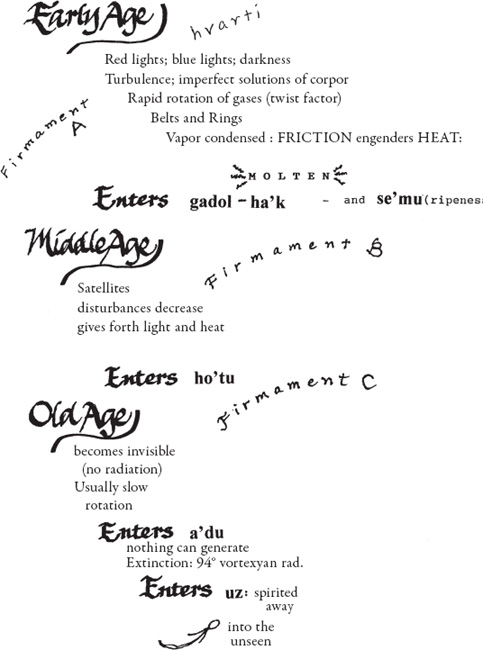 Early Age hvarti
Red lights; blue lights; darkness
Turbulence; imperfect solutions of corpor
Rapid rotation of gases (twist factor)
Firmament A
Belts and Rings
Vapor condensed : FRICTION engenders HEAT:
MOLTEN
Enters gadol - ha'k - and se'mu (ripenes
Middle Age Firmament B
Satellites
disturbances decrease
gives forth light and heat
Enters ho'tu Firmament C
Old Age
becomes invisible
(no radiation)
Usually slow
rotation
Enters a'du
nothing can generate
Extinction: 94° vortexyan rad.
Enters uz: spirited
away
into the
unseen